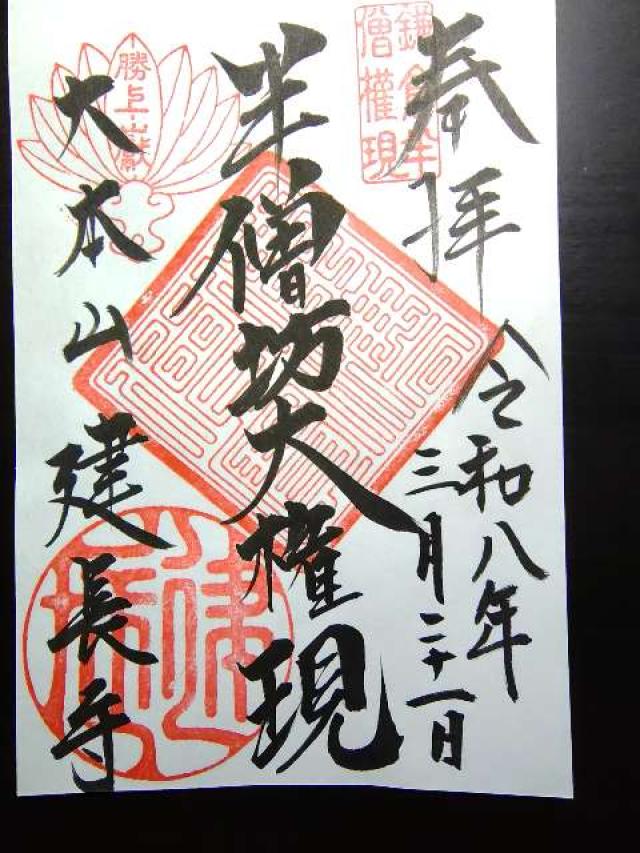 奉拝
令和八年
三月二十一日
鎌倉半
僧權現
半僧坊大權現
勝上山獻
大本山建長寺